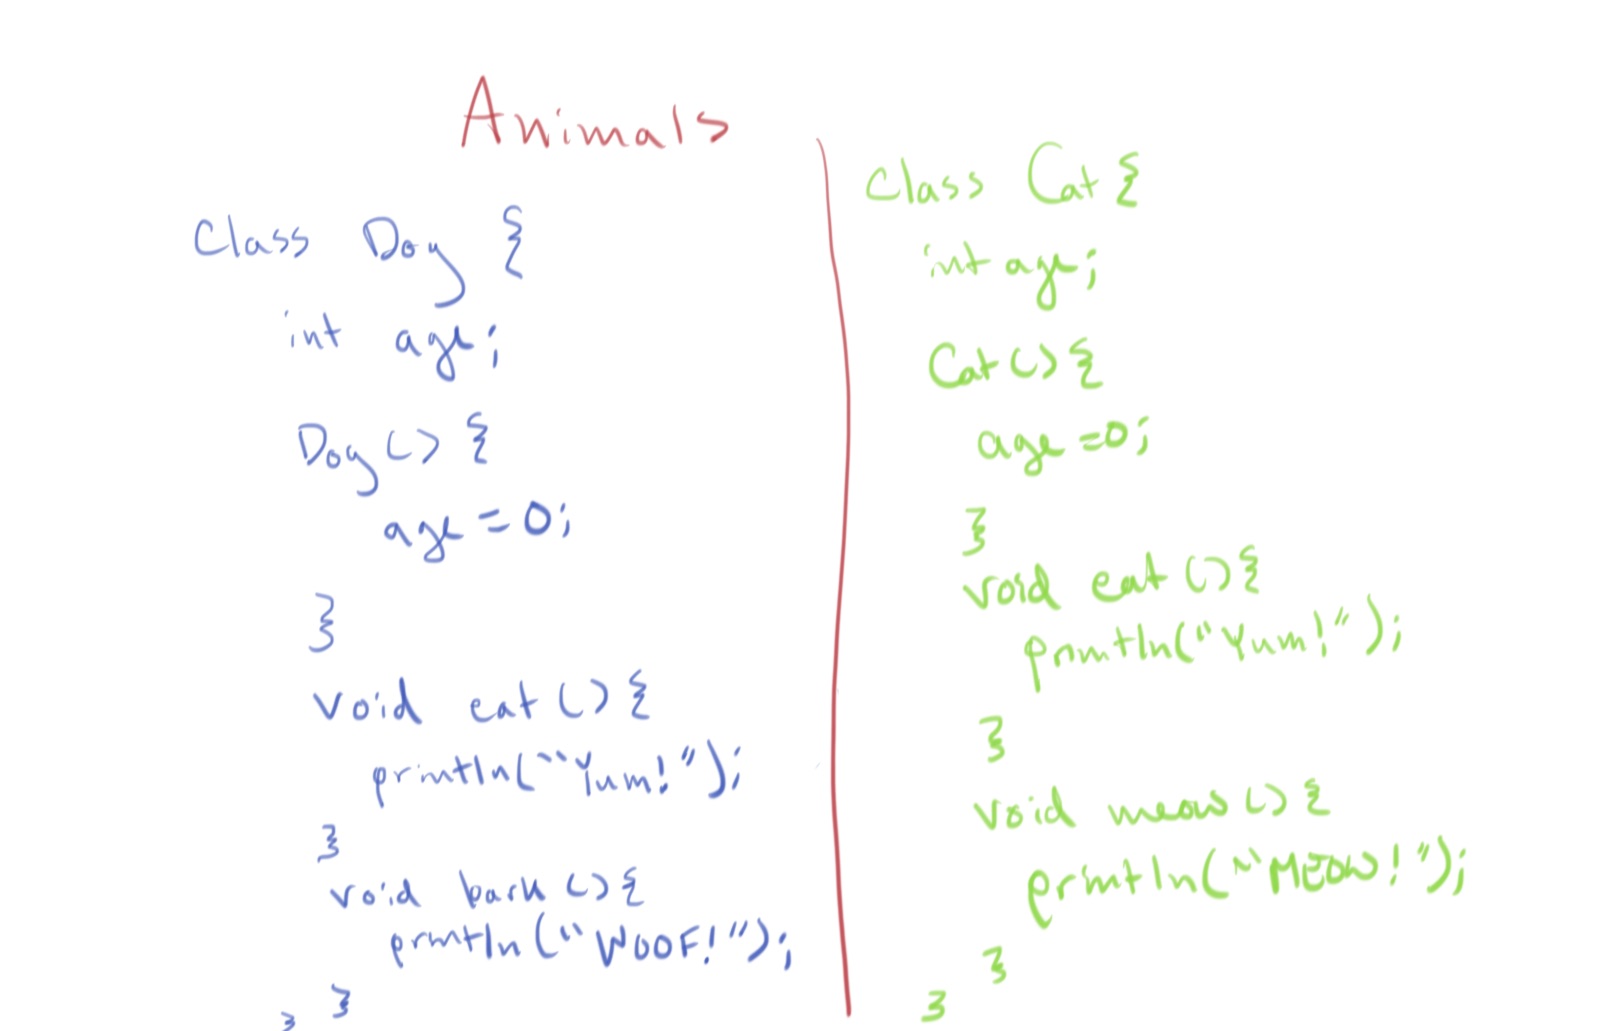 Animals
Class Dog {
int age;
Dog() {
age = 0;
}
void eat() {
println("Yum!");
}
void bark() {
println("WOOF!");
}
}
Class Cat {
int age;
Cat() {
age = 0;
}
void eat() {
println("Yum!");
}
void meow() {
println("MEOW!");
}
}